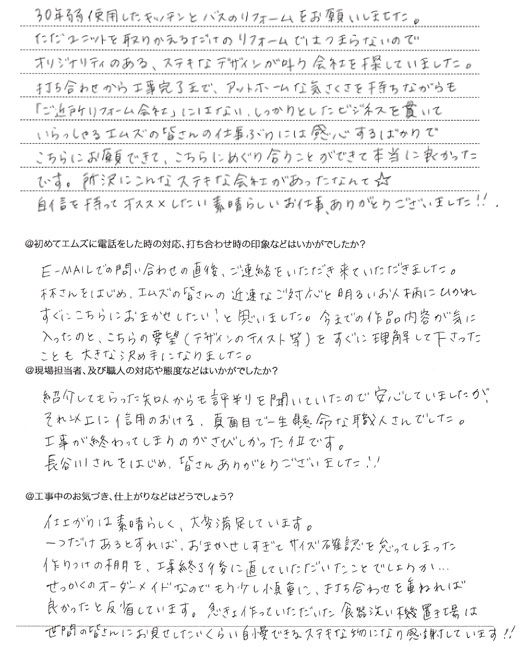 30年弱使用したキッチンとバスのリフォームをお願いしました。
ただユニットを取りかえるだけのリフォームではつまらないので
オリジナリティのある、ステキなデザインが叶う会社を探していました。
打ち合わせから工事完了まで、アットホームな気さくさを持ちながらも
「ご近所リフォーム会社」にはない、しっかりとしたビジネスを貫いて
いらっしゃるエムズの皆さんの仕事ぶりには感心するばかりで
こちらにお願いできて、こちらにめぐり合うことができて本当に良かった
です。所沢にこんなステキな会社があったなんて☆
自信を持ってオススメしたい素晴らしいお仕事、ありがとうございました!!
@初めてエムズに電話をした時の対応、打ち合わせ時の印象などはいかがでしたか?
E-MAILでの問い合わせの直後、ご連絡をいただき来ていただきました。
林さんをはじめ、エムズの皆さんの迅速なご対応と明るいお人柄にひかれ
すぐにこちらにおまかせしたい!と思いました。今までの作品内容が気に
入ったのと、こちらの要望(デザインのテイスト等)をすぐに理解して下さった
ことも大きな決め手になりました。
@現場担当者、及び職人の対応や態度などはいかがでしたか?
紹介してもらった知人からも評判を聞いていたので安心していましたが、
それ以上に信用のおける、真面目で一生懸命な職人さんでした。
工事が終わってしまうのがさびしかった位です。
長谷川さんをはじめ、皆さんありがとうございました!!
@工事中のお気づき、仕上がりなどはどうでしょう?
仕上がりは素晴らしく、大変満足しています。
一つだけあるとすれば、おまかせしすぎてサイズ確認を怠ってしまった
作りつけの棚を、工事終了後に直していただいたことでしょうか…
せっかくのオーダーメイドなのでもう少し慎重に、打ち合わせを重ねれば
良かったと反省しています。急きょ作っていただいた食器洗い機置き場は
世間の皆さんにお見せしたいくらい自慢できるステキな物になり感謝しています!!